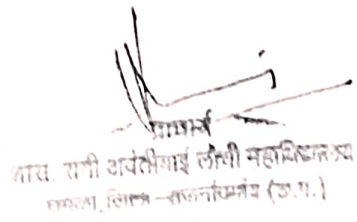 प्राचार्य
शास. रानी अवंतीबाई लोधी महाविद्यालय
घुमका, जिला - राजनांदगांव (छ.ग.)